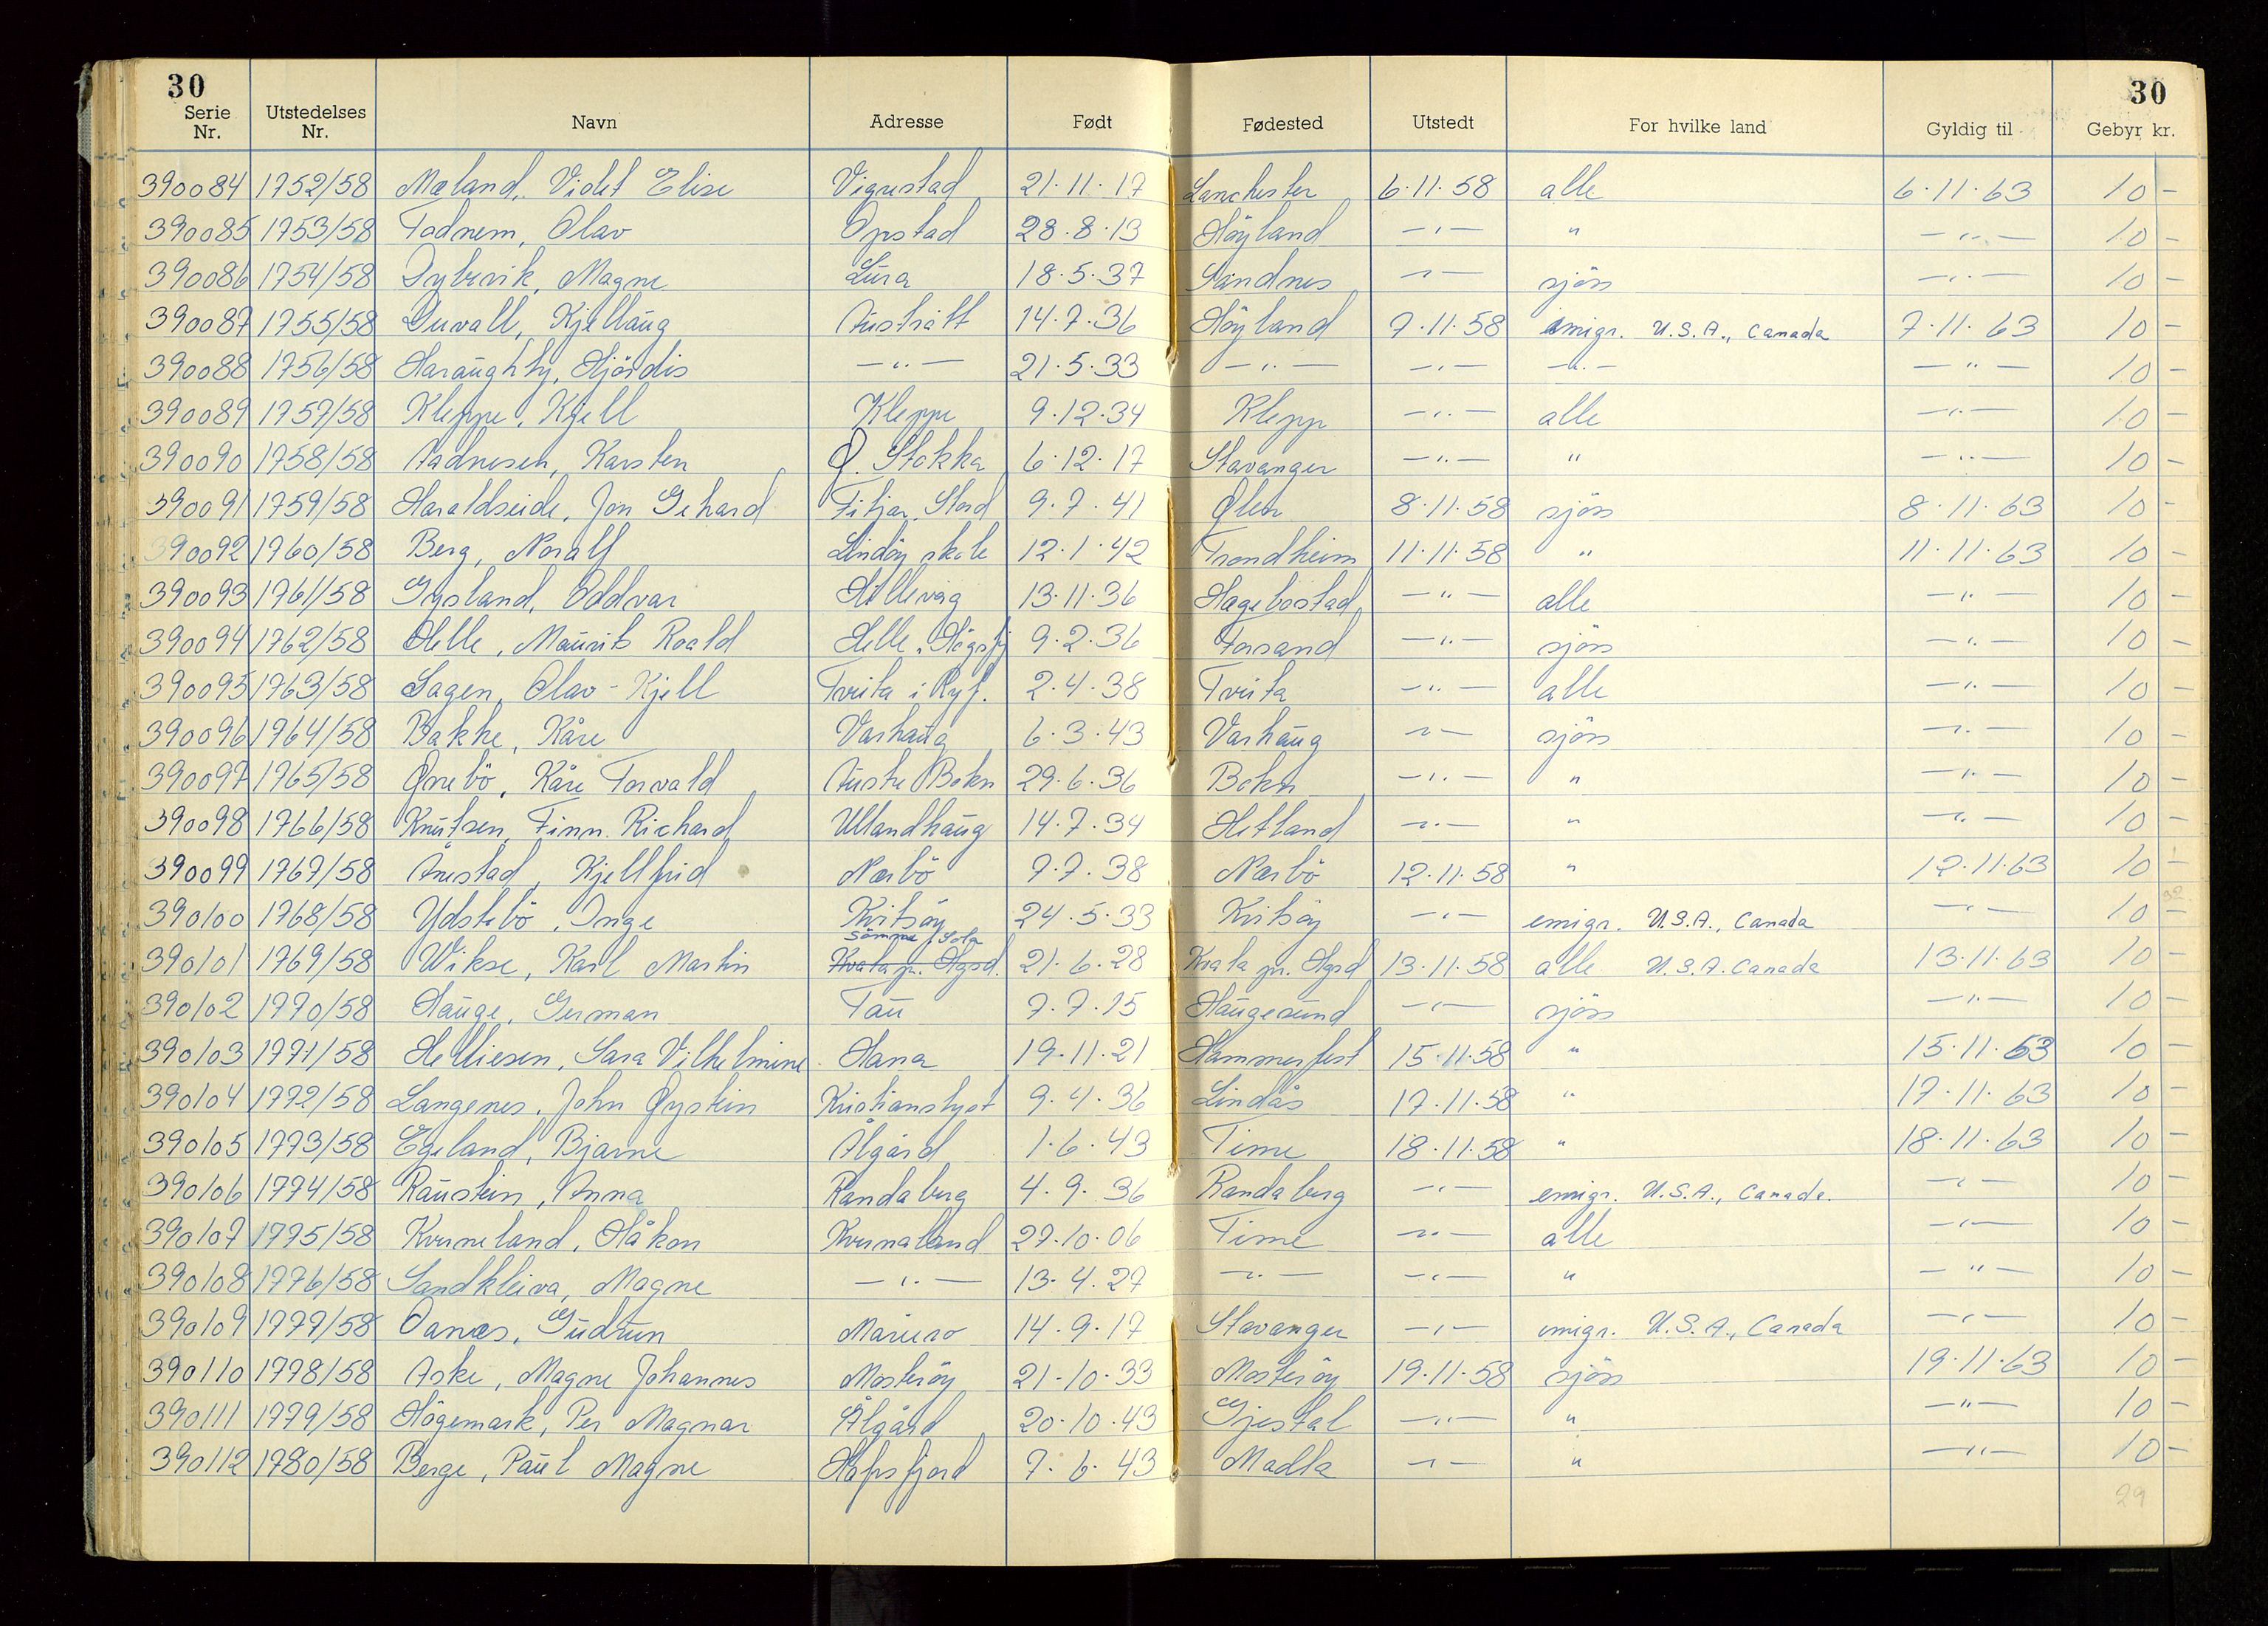 30 30
Serie Nr. Utstedelses Nr. Navn Adresse Født Fødested Utstedt For hvilke land Gyldig til Gebyr kr.
390084 1752/58 Mæland, Violet Elise Vigrestad 21.11.17 Lanchester 6.11.58 alle 6.11.63 10 -
390085 1753/58 Tadnem, Olav Opstad 28.8.13 Höyland -"- " -"- 10 -
390086 1754/58 Dybvik, Magne Lura 18.5.37 Sandnes -"- sjöss -"- 10 -
390087 1755/58 Duvall, Kjellaug Austrått 14.7.36 Höyland 7.11.58 emigr. U.S.A., Canada 7.11.63 10 -
390088 1756/58 Haraughty, Hjördis -"- 21.5.33 -"- -"- -"- -"- 10 -
390089 1757/58 Kleppe, Kjell Kleppe 9.12.34 Klepp -"- alle -"- 10 -
390090 1758/58 Aadnesen, Karsten Ø. Stokka 6.12.17 Stavanger -"- " -"- 10 -
390091 1759/58 Haraldseide, Jon Gehard Fitjar, Stord 9.7.41 Ølen 8.11.58 sjöss 8.11.63 10 -
390092 1960/58 Berg, Noralf Lindöy skole 12.1.42 Trondheim 11.11.58 " 11.11.63 10 -
390093 1761/58 Gysland, Oddvar Hillevåg 13.11.36 Hægebostad -"- alle -"- 10 -
390094 1762/58 Helle, Maurits Roald Helle, Högsfj 9.2.36 Forsand -"- sjöss -"- 10 -
390095 1763/58 Sagen, Olav-Kjell Tveita i Ryf. 2.4.38 Tveita -"- alle -"- 10 -
390096 1764/58 Bakke, Kåre Varhaug 6.3.43 Varhaug -"- sjöss -"- 10 -
390097 1765/58 Ørebö, Kåre Torvald Austre Bokn 29.6.36 Bokn -"- " -"- 10 -
390098 1766/58 Knutsen, Finn Richard Ullandhaug 14.7.34 Hetland -"- " -"- 10 -
390099 1767/58 Årestad, Kjellfrid Nærbö 7.7.38 Nærbö 12.11.58 " 12.11.63 10 -
390100 1768/58 Ydstebö, Inge Kvitsöy 24.5.33 Kvitsöy -"- emigr. U.S.A., Canada -"- 10 -
Sömme, Sola
390101 1769/58 Wikse, Karl Martin Kvala pr. Hgsd. 21.6.28 Kvala pr. Hgsd 13.11.58 alle U.S.A. Canada 13.11.63 10 -
390102 1770/58 Hauge, German Tau 7.7.15 Haugesund -"- sjöss -"- 10 -
390103 1771/58 Helliesen, Sara Vilhelmine Hana 19.11.21 Hammerfest 15.11.58 " 15.11.63 10 -
390104 1772/58 Langenes, John Øystein Kristianslyst 9.4.36 Lindås 17.11.58 " 17.11.63 10 -
390105 1773/58 Egeland, Bjarne Ålgård 1.6.43 Time 18.11.58 " 18.11.63 10 -
390106 1774/58 Raustein, Anna Randaberg 4.9.36 Randaberg -"- emigr. U.S.A., Canada. -"- 10 -
390107 1775/58 Kverneland, Håkon Kvernaland 27.10.06 Time -"- alle -"- 10 -
390108 1776/58 Sandkleiva, Magne -"- 13.4.27 -"- -"- " -"- 10 -
390109 1777/58 Oanæs, Gudrun Maruro 14.9.17 Stavanger -"- emigr. U.S.A., Canada -"- 10 -
390110 1778/58 Aske, Magne Johannes Mosteröy 21.10.33 Mosteröy 19.11.58 sjöss 19.11.63 10 -
390111 1779/58 Högemark, Per Magnar Ålgård 20.10.43 Gjestal -"- " -"- 10 -
390112 1780/58 Berge, Paul Magne Hafrsfjord 7.6.43 Madla -"- " -"- 10 -
29